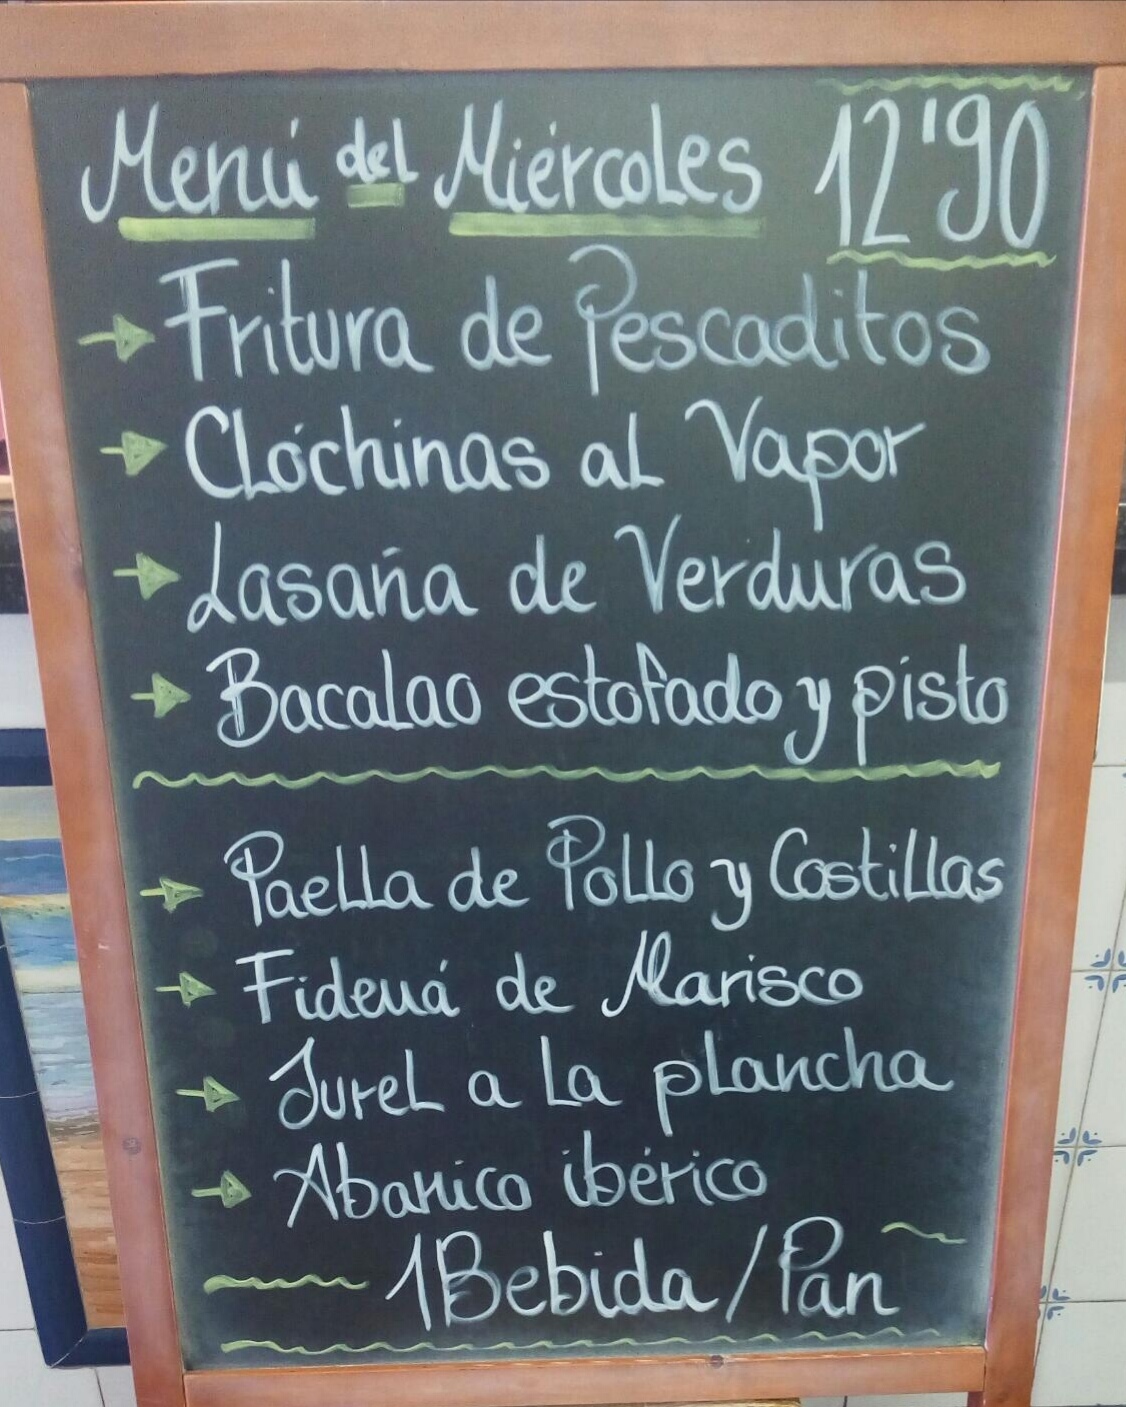 Menú del Miércoles 12'90
Fritura de Pescaditos
Clóchinas al Vapor
Lasaña de Verduras
Bacalao estofado y pisto
Paella de Pollo y Costillas
Fideuá de Marisco
Jurel a la plancha
Abanico ibérico
1 Bebida / Pan